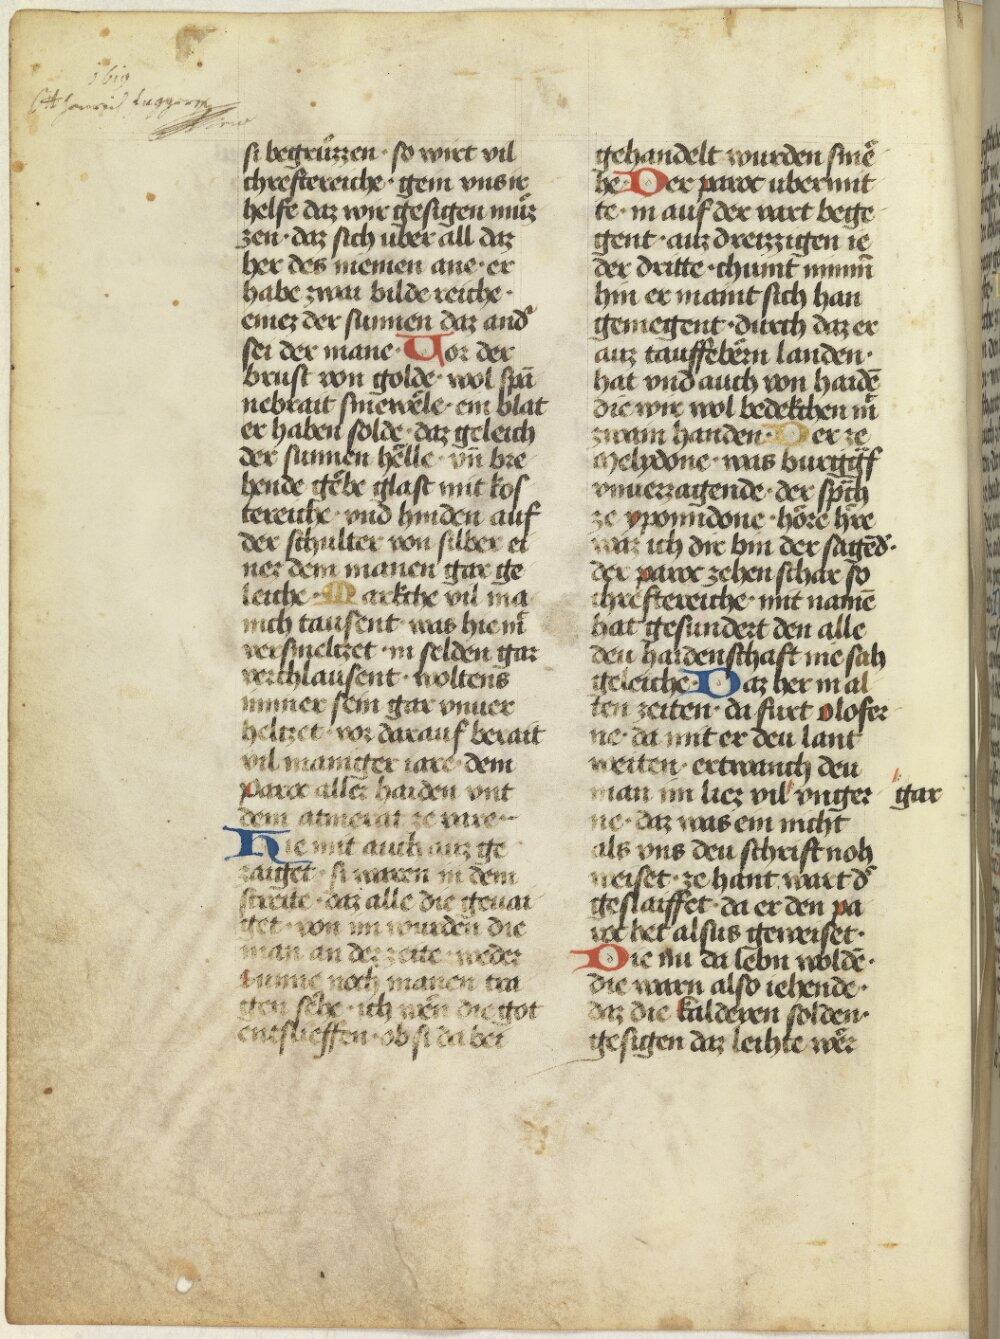 si begrůzzen · so wirt vil
chreftereiche · gern vns ir
helfe daz wir gesigen můz
zen · daz sich uber all daz
her des niemen ane · er
habe zwai bilde reiche ·
einez der sunnen daz andˀ
sei der mane · Vor der
brust von golde · wol span̄
nebrait sinewele · ein blat
er haben solde · daz geleich
der sunnen helle · vn̄ bre
hende gebe glast mit kos
tereiche · vnd hinden auf
der schulter von silber ei
nez dem manen gar ge
leiche · Markche vil ma
nich tausent · was hie mˀ
versmeltzet · in selden gar
verchlausent · woltens
nimer sein gar vnuer
heltzet · vor darauf berait
vil maniger iare · dem
paroc aller haiden vnt
dem atmerat ze vare ·
Hie mit auch auz ge
zaiget · si waren in dem
streite · daz alle die geuai
get · von im wurden die
man an der zeite · weder
sunne noch manen tra
gen sehe · ich wen die got
entslieffen · ob si da bei
gehandelt wurden smē
he · Der paroc ubermit
te · in auf der vart bege
gent · auz dreizzigen ie
der dritte · chumt nimm̄
hin er maint sich han
gemegent · durch daz er
auz tauffebern landen ·
hat vnd auch von haidē
die wir wol bedekchen mˀ
zwain handen · Der ze
Melydone · was burggͣf
vnuerzagende · der sp̄ch
ze yponndone · höre h're
waz ich dir bin der sagēdˀ ·
der paroc zehen schar so
chreftereiche · mit namē
hat gesundert den alle
deu haidenschaft nie sah
geleiche · Daz her in al
ten zeiten · da furt olofer
ne · da mit er deu lant
weiten · ertwanch deu
man im liez vil vnger gar
ne · daz was ein nicht
als vns deu schrift noh
weiset · ze hant wart dˀ
geslaiffet · da er den pa
roc het alsus geweiset ·
Die nu da lebn woldē ·
die warn also iehende ·
daz die kalderen solden ·
gesigen daz leihte wer